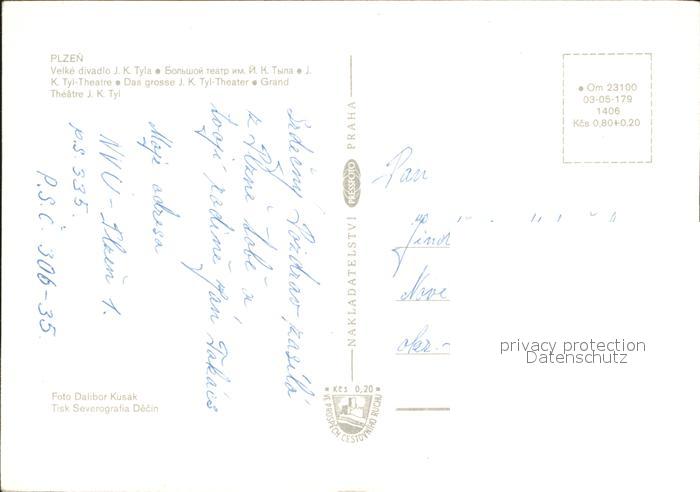 PLZEŇ
Velké divadlo J. K. Tyla ● Большой театр им. Й. К. Тыла ● J.
K. Tyl-Theatre ● Das grosse J. K. Tyl-Theater ● Grand
Théâtre J. K. Tyl
Srdečný Pozdrav zasílá
z Plzně tobě a
tvojí rodině Ján Takács
Moje adresa
NVÚ - Plzeň 1.
p.s. 335.
P.S.Č. 306-35.
Foto Dalibor Kusák
Tisk Severografia Děčín
NAKLADATELSTVÍ PRESSFOTO PRAHA
● Om 23100
03-05-179
1406
Kčs 0,80+0,20
Pan
Jind
Nove
okr. -
privacy protection
Datenschutz
* Kčs 0,20 *
VE PROSPĚCH CESTOVNÍHO RUCHU